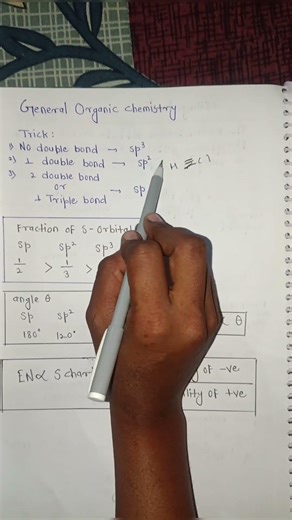 General Organic chemistry
Trick :
1) No double bond → sp³
2) 1 double bond → sp²
3) 2 double bond
or → sp
1 Triple bond
Fraction of S-Orbital
sp sp² sp³
1/2 > 1/3 >
angle θ
sp sp² θ
180° 120°
EN ∝ S char of -ve
lity of +ve